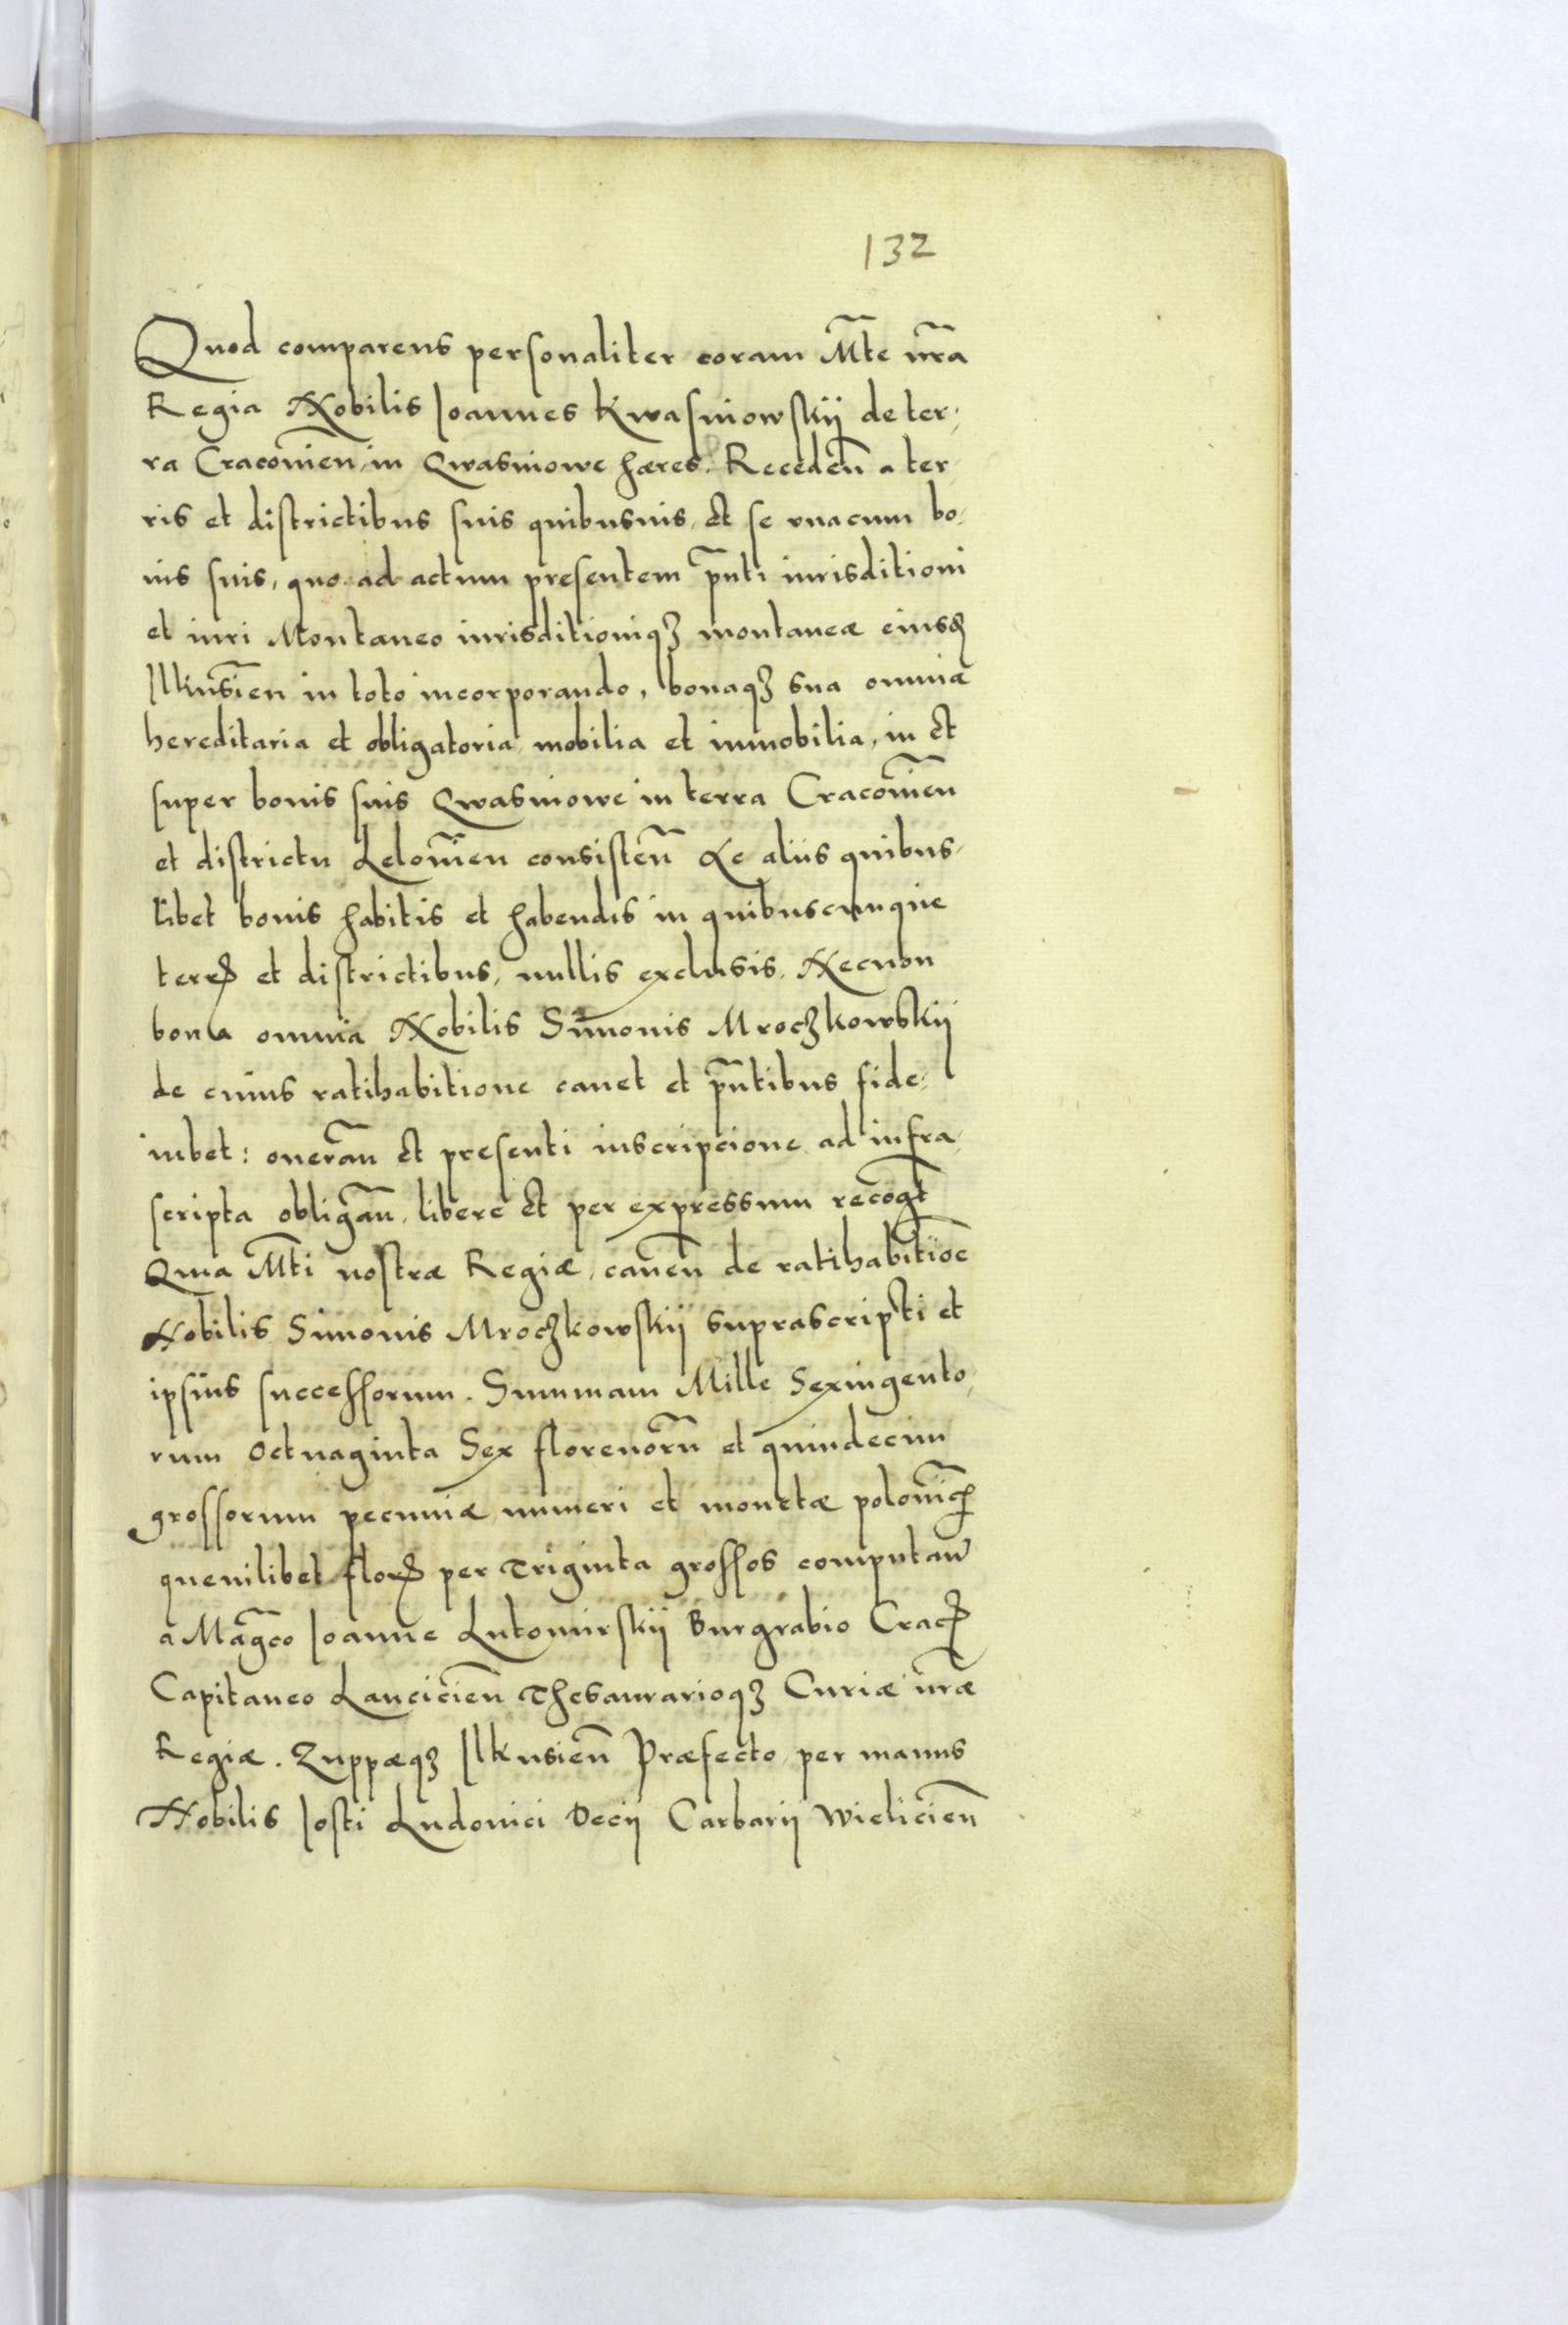 132
Quod comparens personaliter coram Mt̃e nr̃a
Regia Nobilis Ioannes Kwasniowskij de ter,
ra Cracouień, in Qwasniowe hæres. Recedeñ a ter
ris et districtibus suis quibusuis, et se vnacum bo,
nis suis, quo ad actum presentem pñti iurisditioni
et iuri Montaneo iurisditioniqꝫ montaneæ eiusꝺ
Ilkusień in toto incorporando, bonaqꝫ sua omnia
hereditaria et obligatoria mobilia et immobilia, in et
super bonis suis Qwasniowe in terra Cracouień
et districtu Lelouień consisteñ Ac aliis quibus,
libet bonis habitis et habendis in quibuscunque
terrꝭ et districtibus, nullis exclusis, Necnon
bona omnia Nobilis Simonis Mroczkowskij
de cuius ratihabitione cauet et pñtibus fide,
iubet: onerañ et presenti inscripcione ad infra,
scripta obligañ, libere et per expressum recog̃t
Quia Mt̃i nostræ Regiæ, caueñ de ratihabitiõe
Nobilis Simonis Mroczkowskij suprascripti et
ipsius successorum. Summam Mille Sexingento,
rum Octuaginta Sex florenorũ et quindecim
grossorum pecuniæ numeri et monetæ polonicꝭ
quemlibet florꝭ per Triginta grossos computañ
a Mag̃co Ioanne Lutomirskij Burgrabio Cracꝭ
Capitaneo Lancicień Thesaurarioqꝫ Curiæ nr̃æ
Regiæ. Zuppæqꝫ Ilkusień Præfecto per manus
Nobilis Iosti Ludouici Decij Carbarij Wielicień